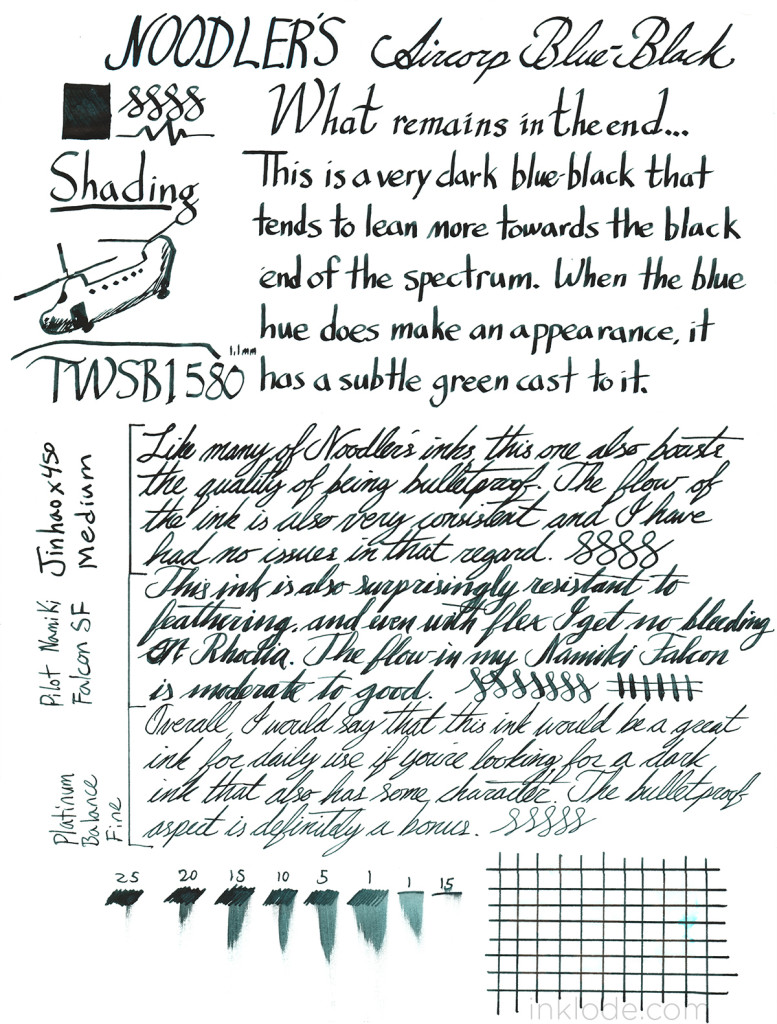 NOODLER'S Aircorp Blue-Black
What remains in the end...
Shading
This is a very dark blue-black that
tends to lean more towards the black
end of the spectrum. When the blue
hue does make an appearance, it
has a subtle green cast to it.
1.1mm
TWSBI 580
Jinhao x450
Medium
Like many of Noodler's inks, this one also boasts
the quality of being bulletproof. The flow of
the ink is also very consistent and I have
had no issues in that regard.
Pilot Namiki
Falcon SF
This ink is also surprisingly resistant to
feathering, and even with flex I get no bleeding
on Rhodia. The flow in my Namiki Falcon
is moderate to good.
Platinum
Balance
Fine
Overall, I would say that this ink would be a great
ink for daily use if you're looking for a dark
ink that also has some character. The bulletproof
aspect is definitely a bonus.
25 20 15 10 5 1 1 15
inklode.com